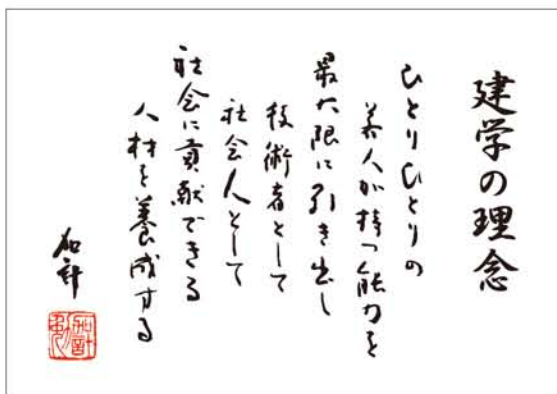 建学の理念
ひとりひとりの
若人が持つ能力を
最大限に引き出し
技術者として
社会人として
社会に貢献できる
人材を養成する
加計
加計勉